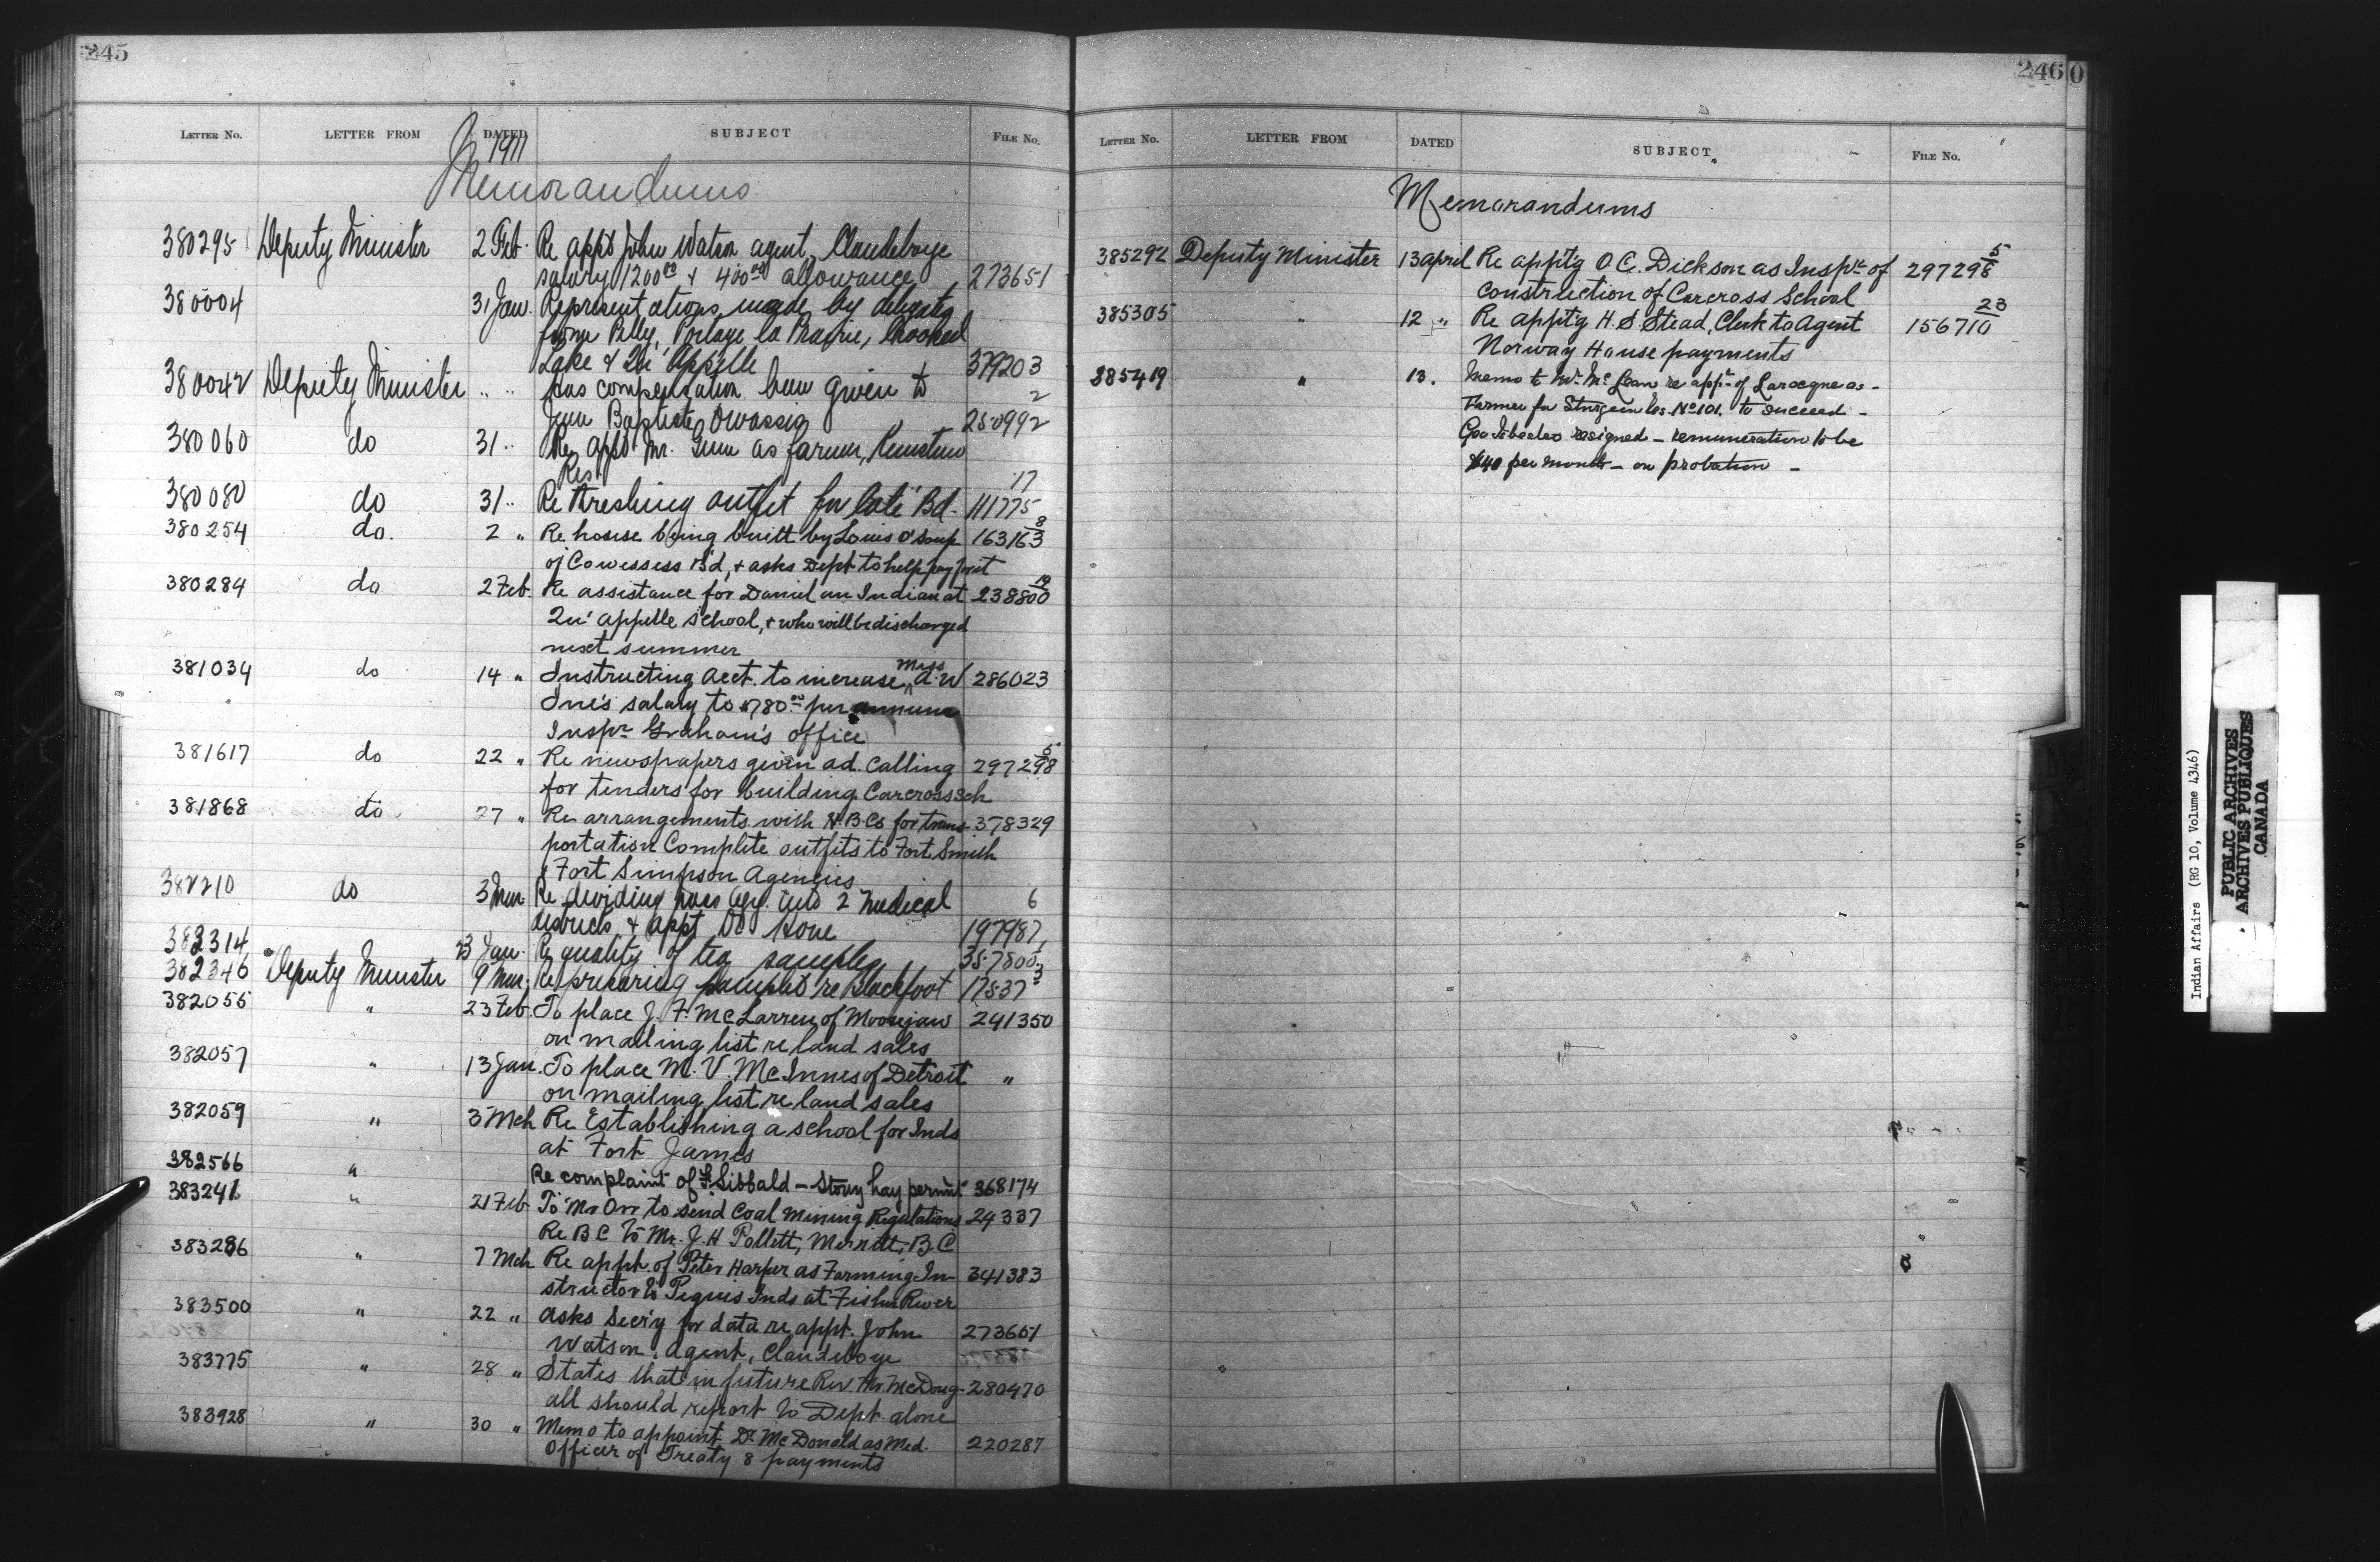 245
LETTER NO. LETTER FROM DATED SUBJECT FILE NO.
1911
Memorandums
380295 Deputy Minister 2 Feb. Re appt John Watson agent, Clandeboye
salary 1200.00 & 400.00 allowance 273651
380004 31 Jan. Representations made by delegates
from Pelly, Portage la Prairie, Crooked
Lake & Qu'Appelle 379203
380042 Deputy Minister " " Has compensation been given to 2
Jean Baptiste Owassig 250992
380060 do 31 " Re appt Mr. as farmer,
Res. 17
380080 do 31 " Re threshing outfit for Coté Bd. 111775
380254 do. 2 " Re house being built by Louis O'Soup 163163 8
of Cowessess Bd, & asks Dept to help pay for it
380284 do 2 Feb. Re assistance for Daniel an Indian at 238800 19
Qu'appelle school, & who will be discharged
next summer
381034 do 14 " Instructing Acct. to increase Miss A. W 286023
salary to $780.00 per annum
Inspr Graham's office
381617 do 22 " Re newspapers given ad. calling 297298 5
for tenders for building Carcross Sch
381868 do 27 " Re arrangements with H B Co for trans- 378329
portation Complete outfits to Fort Smith
& Fort Simpson Agencies
382210 do 3 Mar. Re dividing Agy. into 2 medical 6
districts & appt Dr 197987
382314 23 Jan. Re quality of tea samples 357800
382346 Deputy Minister 9 Mar. Re preparing samples re Blackfoot 17537 3
382055 " 23 Feb. To place J. F. McLarren of Moosejaw 241350
on mailing list re land sales
382057 " 13 Jan. To place M. V. McInnes of Detroit "
on mailing list re land sales
382059 " 3 Mch Re Establishing a school for Inds
at Fort James
382566 " Re complaint of F. Sibbald - Stony hay permit 368174
383241 " 21 Feb. To Mr Orr to send Coal Mining Regulations 24337
Re B C to Mr. J. H Pollett, Merritt, B.C
383286 " 7 Mch Re appt. of Peter Harper as Farming In- 341383
structor to Peguis Inds at Fisher River
383500 " 22 " Asks Sec'y for data re appt. John 273651
Watson, Agent, Clandeboye
383775 " 28 " States that in future Rev. Mr. McDoug- 280470
all should report to Dept. alone
383928 " 30 " Memo to appoint Dr McDonald as Med. 220287
Officer of Treaty 8 payments
246
0
LETTER NO. LETTER FROM DATED SUBJECT FILE NO.
Memorandums
385292 Deputy Minister 13 april Re appt'g O. C. Dickson as Inspr of 297298 5
construction of Carcross School
385305 " 12 " Re appt'g H. S. Stead, Clerk to Agent 156710 23
Norway House payments
385419 " 13. Memo to Mr. McLean re appt of Larocque as -
Farmer for Sturgeon No 101. to succeed -
Geo resigned - remuneration to be
$40 per month - on probation -
Indian Affairs (RG 10, Volume 4346)
PUBLIC ARCHIVES
ARCHIVES PUBLIQUES
CANADA